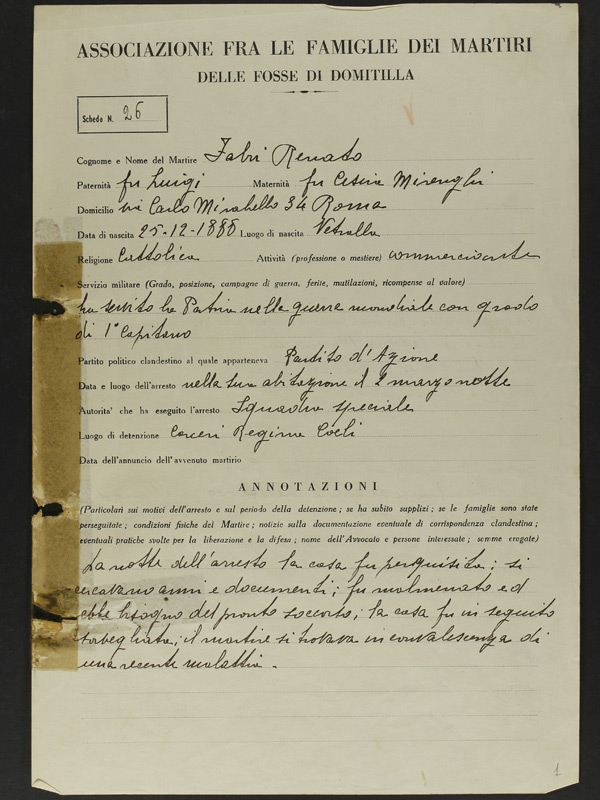 ASSOCIAZIONE FRA LE FAMIGLIE DEI MARTIRI
DELLE FOSSE DI DOMITILLA
Scheda N. 26
Cognome e Nome del Martire Fabri Renato
Paternità fu Luigi Maternità fu Cesira
Domicilio via Carlo Mirabello 34 Roma
Data di nascita 25-12-1888 Luogo di nascita Vetralla
Religione Cattolica Attività (professione o mestiere) commerciante
Servizio militare (Grado, posizione, campagne di guerra, ferite, mutilazioni, ricompense al valore)
ha servito la Patria nella guerra mondiale con grado
di 1° Capitano
Partito politico clandestino al quale apparteneva Partito d'Azione
Data e luogo dell'arresto nella sua abitazione il 2 marzo notte
Autorita' che ha eseguito l'arresto Squadra speciale
Luogo di detenzione Carceri Regina Coeli
Data dell'annuncio dell'avvenuto martirio
ANNOTAZIONI
(Particolari sui motivi dell'arresto e sul periodo della detenzione; se ha subito supplizi; se le famiglie sono state
perseguitate; condizioni fisiche del Martire; notizie sulla documentazione eventuale di corrispondenza clandestina;
eventuali pratiche svolte per la liberazione e la difesa; nome dell'Avvocato e persone interessate; somme erogate)
La notte dell'arresto la casa fu perquisita; si
cercavano armi e documenti; fu malmenato ed
ebbe bisogno del pronto soccorso; la casa fu in seguito
sorvegliata; il martire si trovava in convalescenza di
una recente malattia.
1